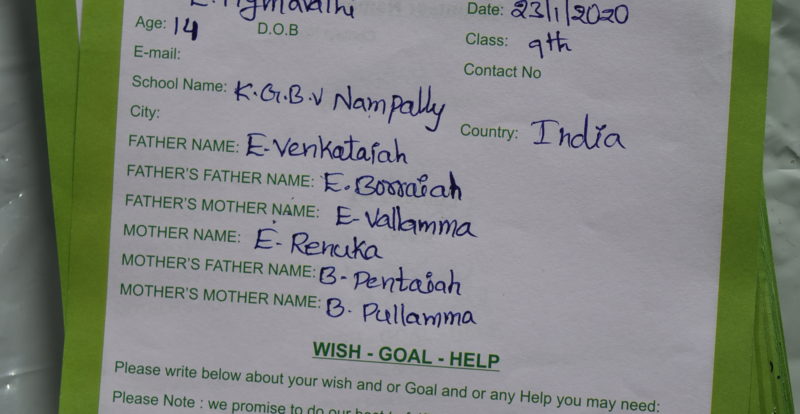 Date: 23/1/2020
Age: 14 D.O.B
Class: 9th
E-mail:
Contact No
School Name: K.G.B.V Nampally
City:
Country: India
FATHER NAME: E-Venkataiah
FATHER'S FATHER NAME: E. Borraiah
FATHER'S MOTHER NAME: E-Vallamma
MOTHER NAME: E- Renuka
MOTHER'S FATHER NAME: B-Pentaiah
MOTHER'S MOTHER NAME: B. Pullamma
WISH - GOAL - HELP
Please write below about your wish and or Goal and or any Help you may need:
Please Note : we promise to do our best